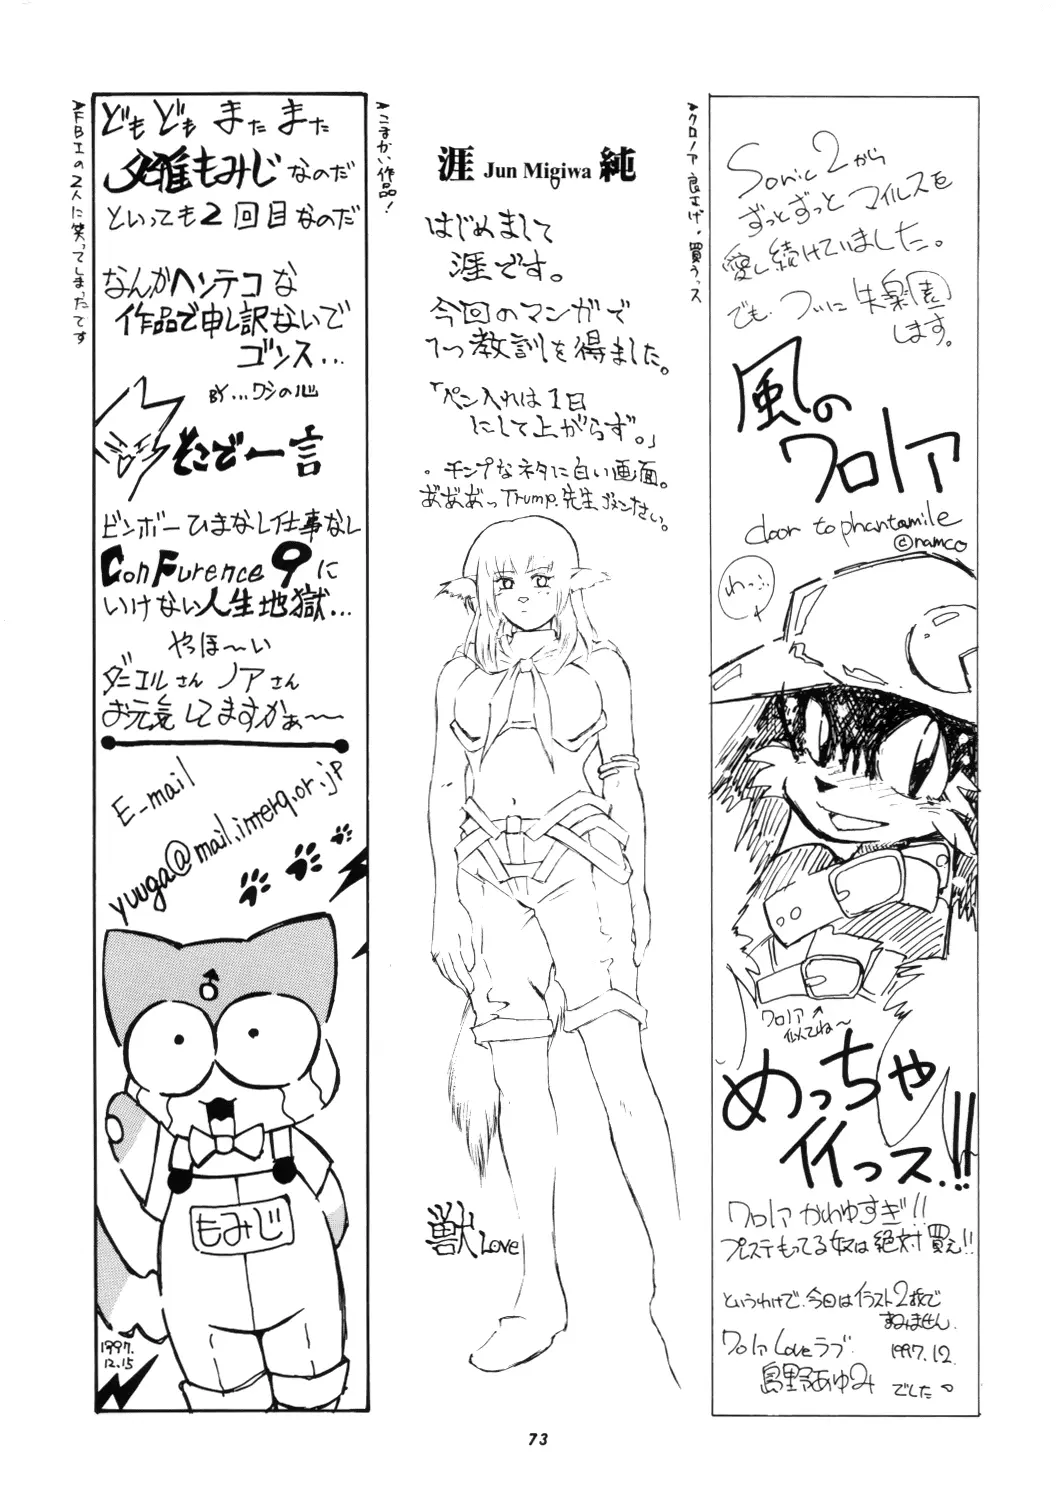 クロノア良さげ。買うっス
Sonic 2から
ずっとずっとマイルスを
愛し続けていました。
でも、ついに失楽園
します。
風の
クロノア
door to phantomile
©namco
わっ…
クロノア
似てね〜
めっちゃ
イイっス!!
クロノアかわゆすぎ!!
プレステもってる奴は絶対買え!!
というわけで、今回はイラスト2枚で
すみません。
クロノアLoveラブ
1997.12.
島野あゆみ でした。
こまかい作品!
涯 Jun Migiwa 純
はじめまして
涯です。
今回のマンガで
1つ教訓を得ました。
「ペン入れは1日
にして上がらず。」
。チンプなネタに白い画面。
あ゛あ゛あ゛っTrump.先生ゴメンなさい。
獣Love
FBIの2人に笑ってしまったです
どもども またまた
夕雅もみじなのだ
といっても2回目なのだ
なんかヘンテコな
作品で申し訳ないで
ゴンス...
BY...ワシの心
そこで一言
ビンボーひまなし仕事なし
ConFurence 9に
いけない人生地獄...
やっほ〜い
ダニエルさん ノアさん
お元気してますかぁ〜
E-mail
yuuga@mail.interq.or.jp
♂
もみじ
1997.
12.15
73